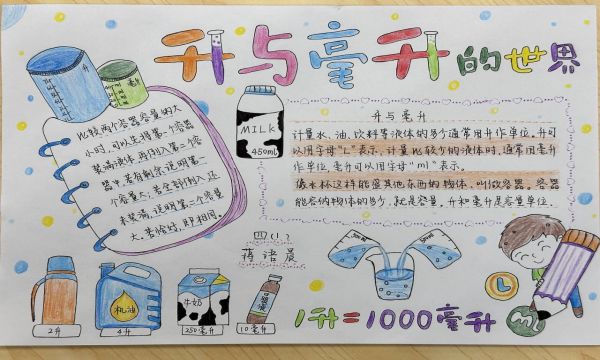 升与毫升的世界
升
毫升
比较两个容器容量的大
小时,可以先将第一个容器
装满液体,再倒入第二个容
器中,若有剩余,说明第一
个容量大,若全部倒入还
未装满,说明第二个容量
大,若恰好,即相同。
MILK
450ml
升与毫升
计量水、油、饮料等液体的多少通常用升作单位,升可
以用字母“L”表示,计量比较少的液体时,通常用毫升
作单位,毫升可以用字母“ml”表示。
像水杯这样能盛其他东西的物体,叫做容器。容器
能容纳物体的多少,就是容量。升和毫升是容量单位。
四(1)
蒋语晨
机油
牛奶
2升
4升
250毫升
10毫升
L
ml
1升=1000毫升